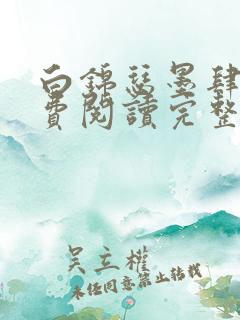 白錦瑟墨肆
費閱讀完整
吴立權
未任同意禁止轉載